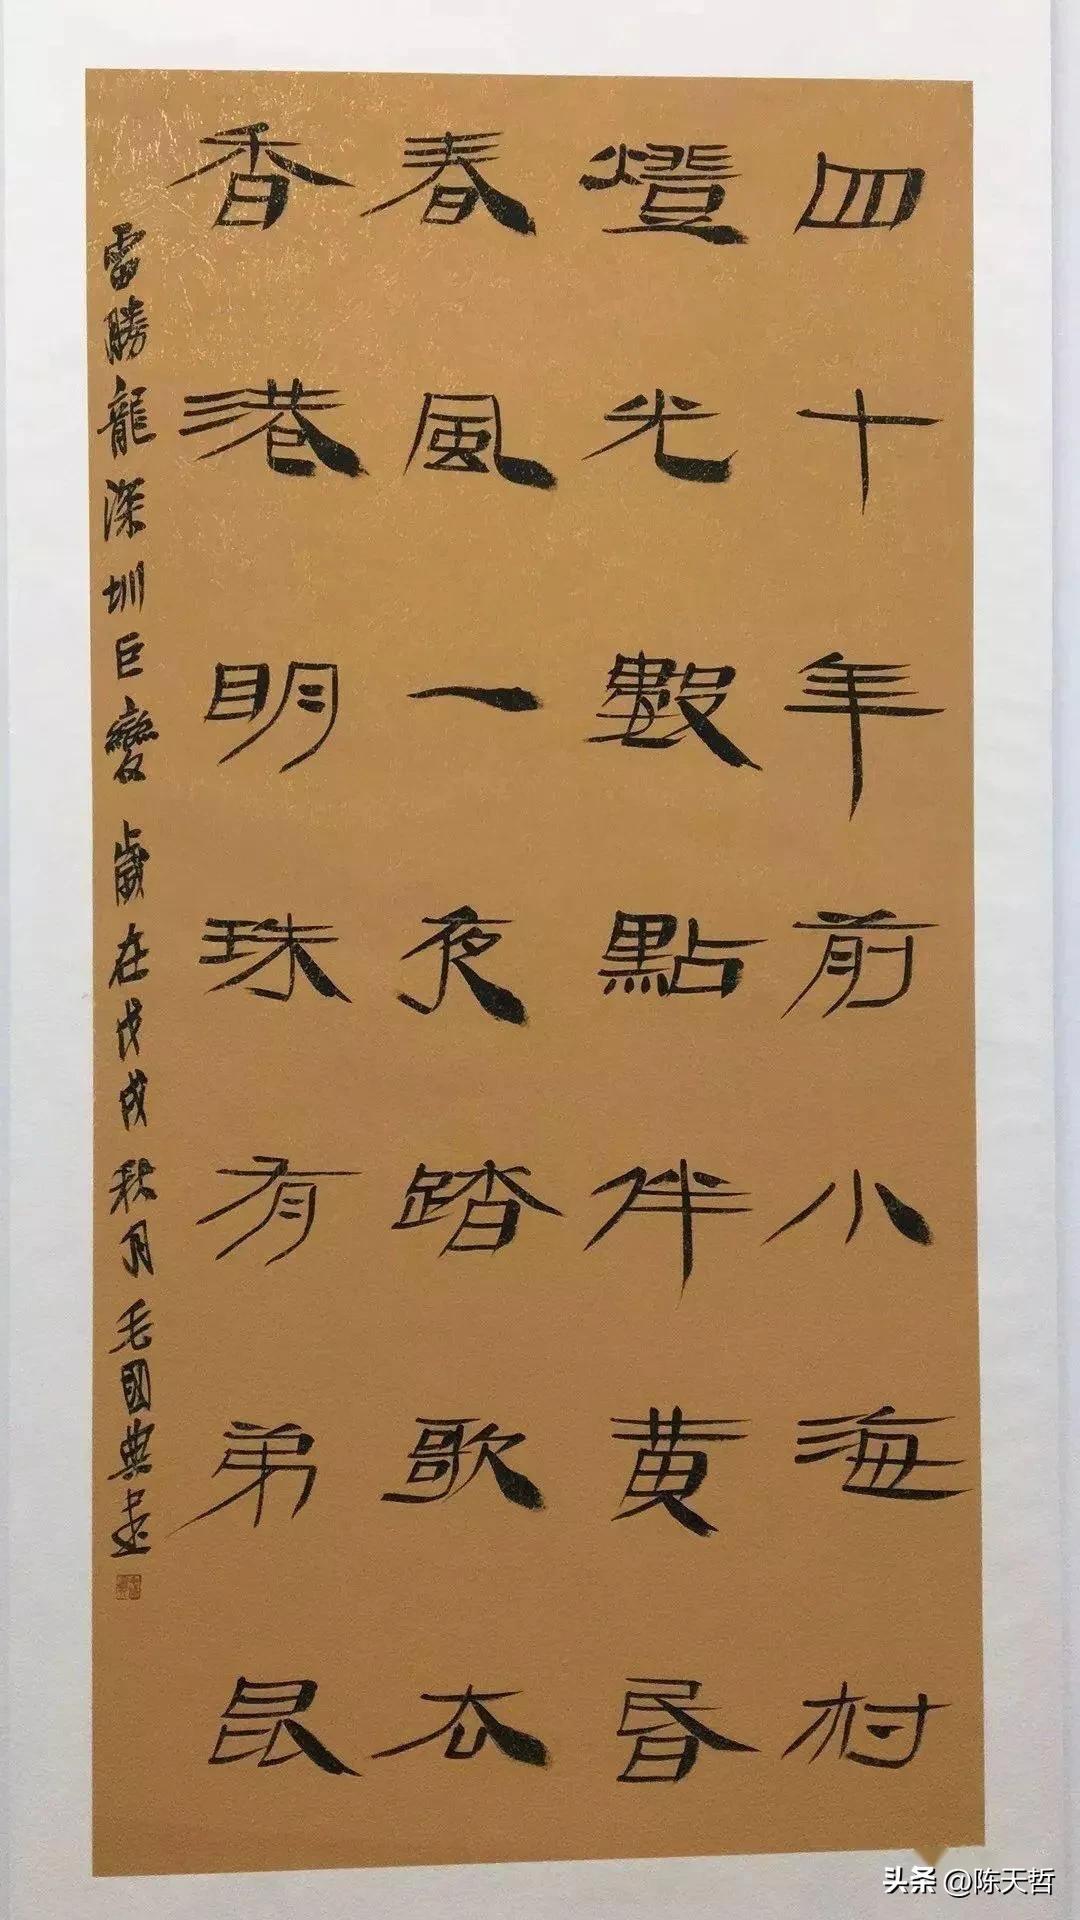 四十年前小海村
燈光數點伴黄昏
春風一夜踏歌去
香港明珠有弟昆
雷勝龍深圳巨變 歲在戊戌秋月 毛國典書
头条 @陈天哲